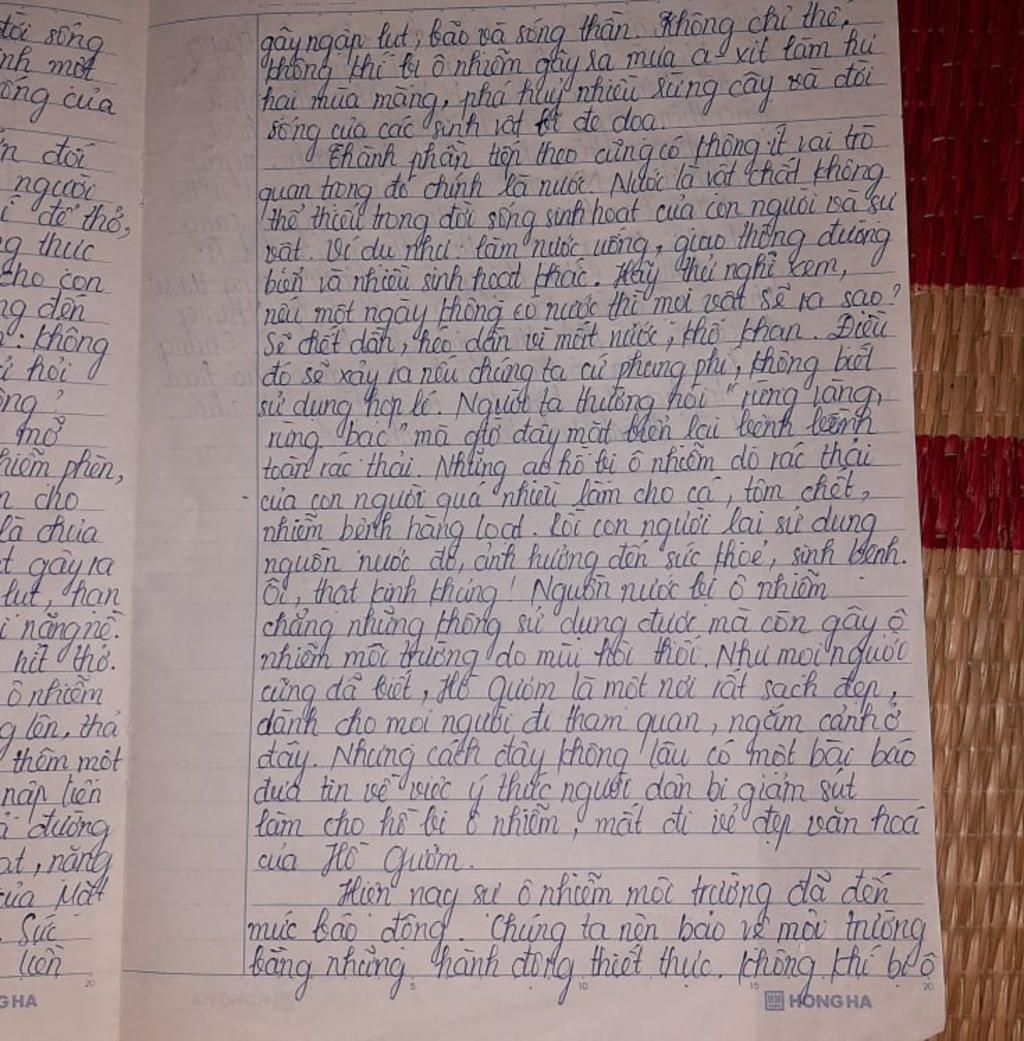 tới sống
nh một
ống của
n đối
người
để thở,
g thực
cho con
ng đến
không
hỏi
ông?
mở
hiễm phèn,
n cho
là chưa
t gây ra
lụt, hạn
i nặng nề.
hít thở.
ô nhiễm
g lên, thả
thêm một
nạp liên
đường
at, năng
của Mặt
Sức
liên
gây ngập lụt, bão và sóng thần. Không chỉ thế,
không khí bị ô nhiễm gây ra mưa a-xít làm hư
hại mùa màng, phá huỷ nhiều rừng cây và đời
sống của các sinh vật bị đe doạ.
Thành phần tiếp theo cũng có không ít vai trò
quan trọng đó chính là nước. Nước là vật chất không
thể thiếu trong đời sống sinh hoạt của con người và sự
vật. Ví dụ như: làm nước uống, giao thông đường
biển và nhiều sinh hoạt khác. Hãy thử nghĩ xem,
nếu một ngày không có nước thì mọi vật sẽ ra sao?
Sẽ chết dần, héo dần vì mất nước, khô khan. Điều
đó sẽ xảy ra nếu chúng ta cứ phung phí, không biết
sử dụng hợp lí. Người ta thường nói "rừng vàng,
rừng bạc" mà giờ đây mặt biển lại bềnh bềnh
toàn rác thải. Những ao hồ bị ô nhiễm do rác thải
của con người quá nhiều làm cho cá, tôm chết,
nhiễm bệnh hàng loạt. Rồi con người lại sử dụng
nguồn nước đó, ảnh hưởng đến sức khoẻ, sinh bệnh.
Ôi, thật kinh khủng! Nguồn nước bị ô nhiễm
chẳng những không sử dụng được mà còn gây ô
nhiễm môi trường do mùi hôi thối. Như mọi người
cũng đã biết, Hồ Gươm là một nơi rất sạch đẹp,
dành cho mọi người đi tham quan, ngắm cảnh ở
đây. Nhưng cách đây không lâu có một bài báo
đưa tin về việc ý thức người dân bị giảm sút
làm cho hồ bị ô nhiễm, mất đi vẻ đẹp văn hoá
của Hồ Gươm.
Hiện nay sự ô nhiễm môi trường đã đến
mức báo động. Chúng ta nên bảo vệ môi trường
bằng những hành động thiết thực. Không khí bị ô
20
5
10
15
20
GHA
HONG HA